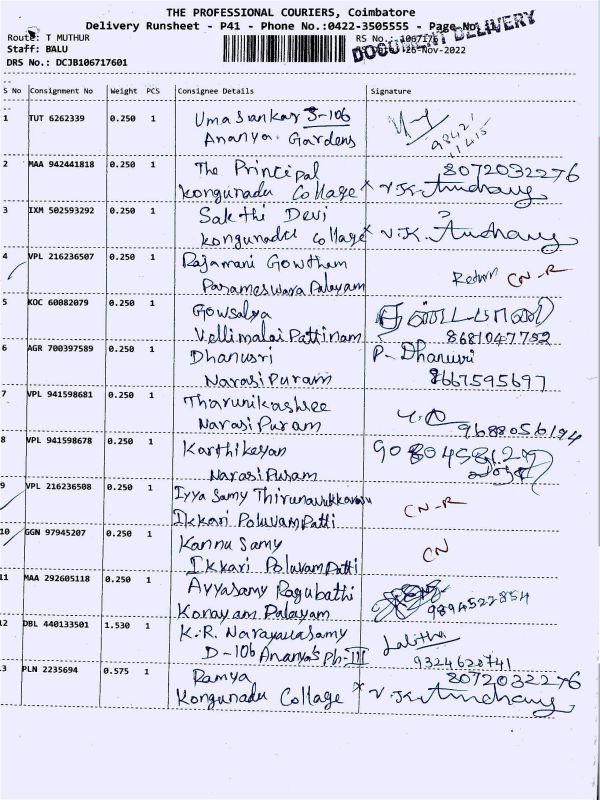 THE PROFESSIONAL COURIERS, Coimbatore
Delivery Runsheet - P41 - Phone No.:0422-3505555 - Page No.
Route: T MUTHUR
RS No.: 1067176
DOCUMENT DELIVERY
Staff: BALU
26-Nov-2022
DRS No.: DCJB106717601
S No Consignment No Weight PCS Consignee Details Signature
1 TUT 6262339 0.250 1 Umasankar S-106
Ananya. Gardens
98421
11415
2 MAA 942441818 0.250 1 The Principal 8072032276
Kongunadu Collage x V.K.
3 IXM 502593292 0.250 1 Sakthi Devi
Kongunadu Collage x V.K.
4 VPL 216236507 0.250 1 Rajamani Gowtham
Parameswara Palayam Return CN-R
5 KOC 60082079 0.250 1 Gowsalya
Vellimalai Pattinam 8681047792
6 AGR 700397589 0.250 1 Dhanusri P. Dhanusri
Narasipuram 8667595697
7 VPL 941598681 0.250 1 Tharunikashree
Narasipuram 9688056194
8 VPL 941598678 0.250 1 Karthikeyan
Narasipuram
9 VPL 216236508 0.250 1 Iyya Samy Thirunavukkarasu
Ikkari Poluvampatti CN-R
10 GGN 97945207 0.250 1 Kannu Samy
Ikkari Poluvampatti CN
11 MAA 292605118 0.250 1 Ayyasamy Ragubathi
Konayam Palayam 9894522854
12 DBL 440133501 1.530 1 K.R. Narayanasamy Lalitha
D-106 Ananya's Ph-III 9324620741
13 PLN 2235694 0.575 1 Ramya 8072032276
Kongunadu Collage x V.K.